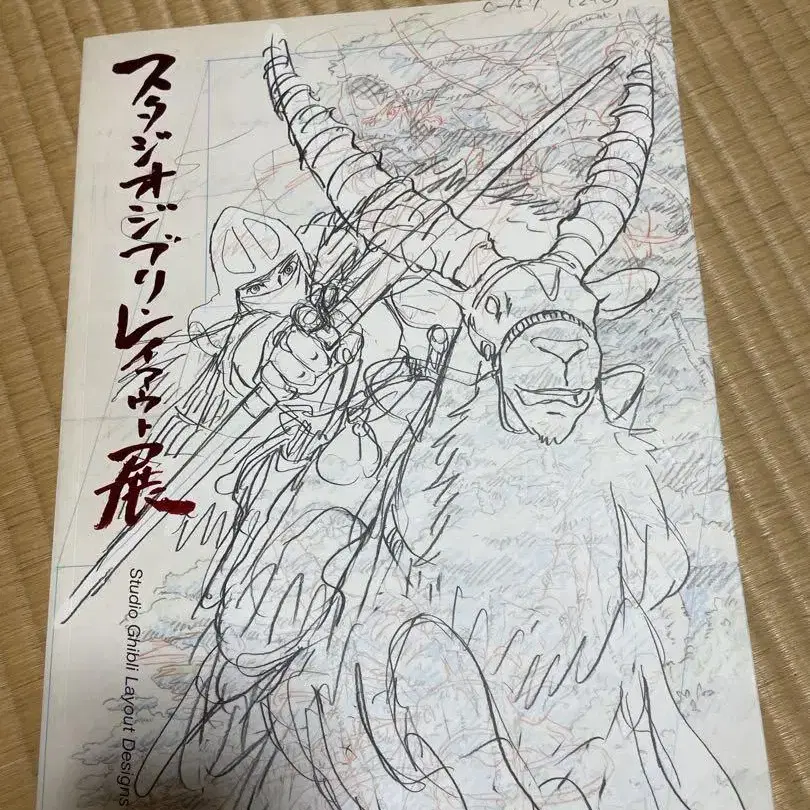 スタジオジブリ・レイアウト展
Studio Ghibli Layout Designs